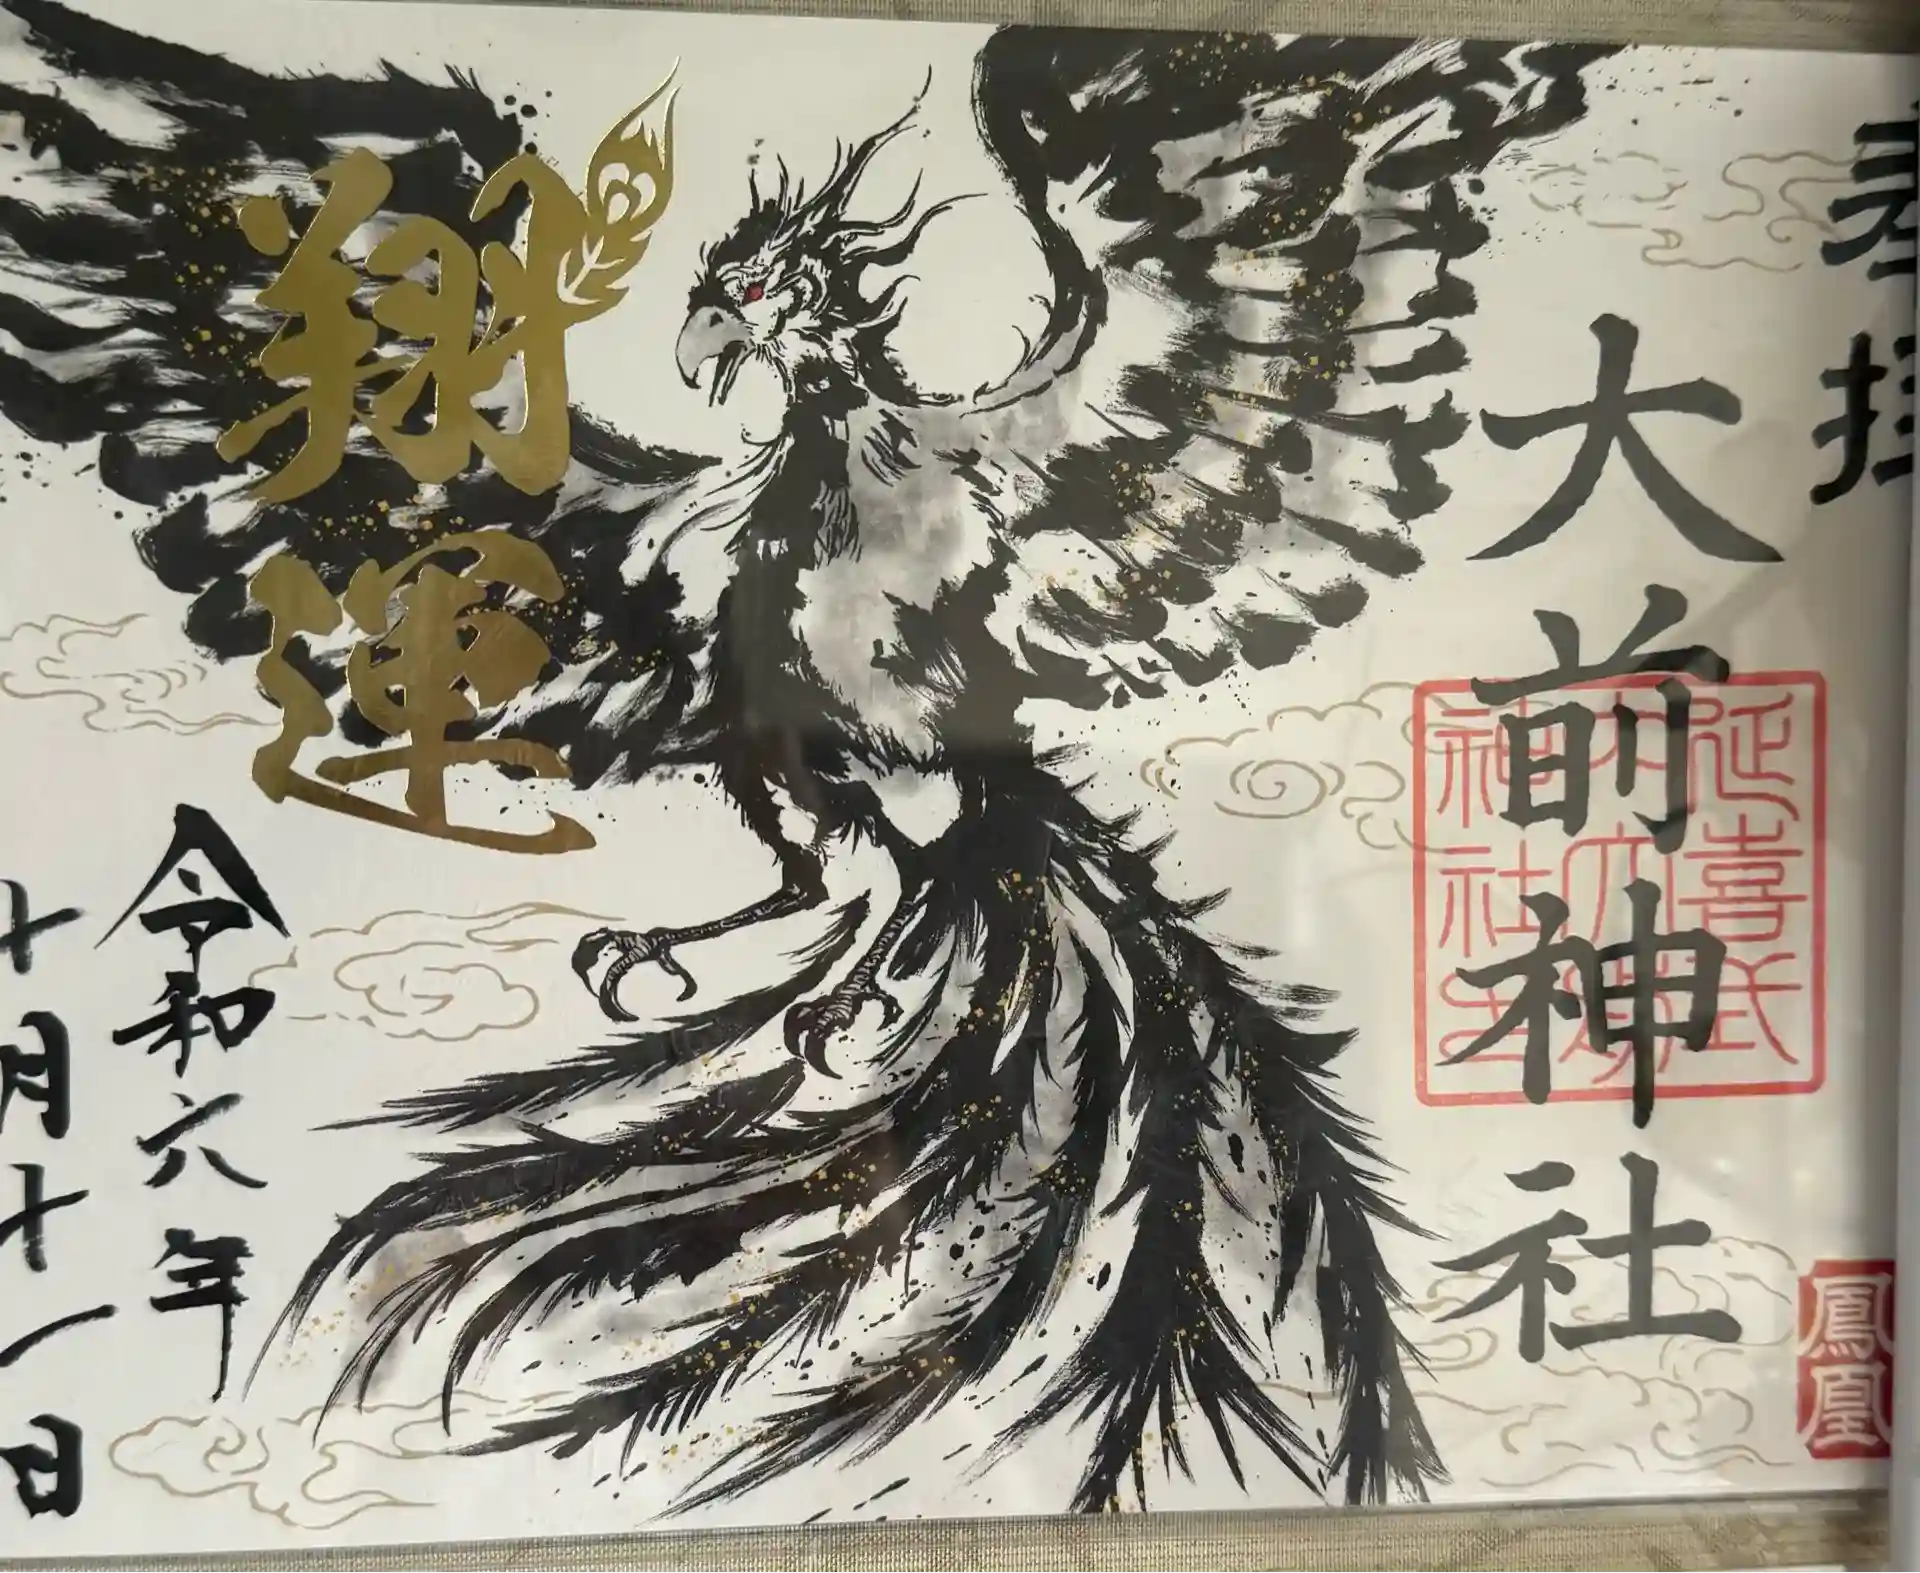 奉拝
鳳凰
大前神社
延喜式
内大前
神社
翔運
令和六年
十月十一日